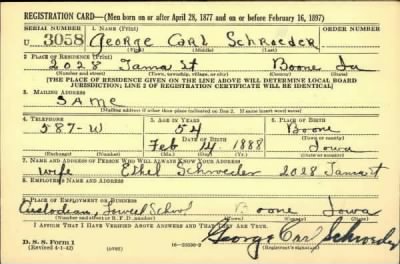 REGISTRATION CARD—(Men born on or after April 28, 1877 and on or before February 16, 1897)
SERIAL NUMBER 1. NAME (Print) ORDER NUMBER
U 3058 George Carl Schroeder
(First) (Middle) (Last)
2. PLACE OF RESIDENCE (Print)
2028 Tama St Boone Ia
(Number and street) (Town, township, village, or city) (County) (State)
[THE PLACE OF RESIDENCE GIVEN ON THE LINE ABOVE WILL DETERMINE LOCAL BOARD
JURISDICTION; LINE 2 OF REGISTRATION CERTIFICATE WILL BE IDENTICAL]
3. MAILING ADDRESS
SAME
[Mailing address if other than place indicated on line 2. If same insert word same]
4. TELEPHONE 5. AGE IN YEARS 6. PLACE OF BIRTH
587-W 54 Boone
DATE OF BIRTH (Town or county)
Feb 14 1888 Iowa
(Exchange) (Number) (Mo.) (Day) (Yr.) (State or country)
7. NAME AND ADDRESS OF PERSON WHO WILL ALWAYS KNOW YOUR ADDRESS
Wife Ethel Schroeder 2028 Tama St
8. EMPLOYER'S NAME AND ADDRESS
Custodian, Lowell School Boone Iowa
9. PLACE OF EMPLOYMENT OR BUSINESS
(Number and street or R. F. D. number) (Town) (County) (State)
I AFFIRM THAT I HAVE VERIFIED ABOVE ANSWERS AND THAT THEY ARE TRUE.
D. S. S. Form 1
(Revised 4-1-42) (over) George Carl Schroeder
(Registrant's signature)